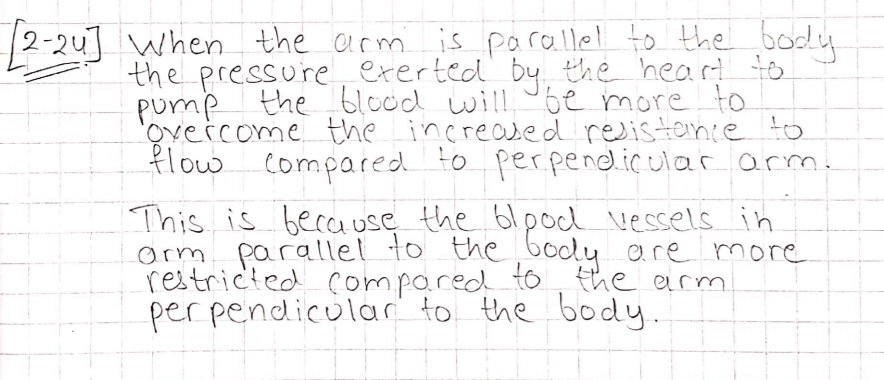 [2-24] When the arm is parallel to the body
the pressure exerted by the heart to
pump the blood will be more to
overcome the increased resistance to
flow compared to perpendicular arm.
This is because the blood vessels in
arm parallel to the body are more
restricted compared to the arm
perpendicular to the body.